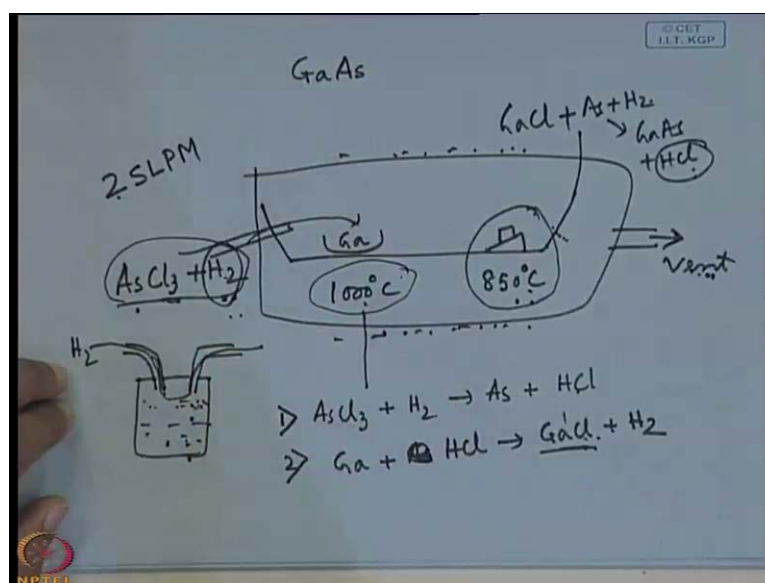 © CET
I.I.T. KGP
GaAs
GaCl + As + H2
→ GaAs
+ HCl
2 SLPM
AsCl3 + H2
Ga
1000°C
850°C
Vent
H2
1) AsCl3 + H2 → As + HCl
2) Ga + HCl → GaCl + H2
NPTEL